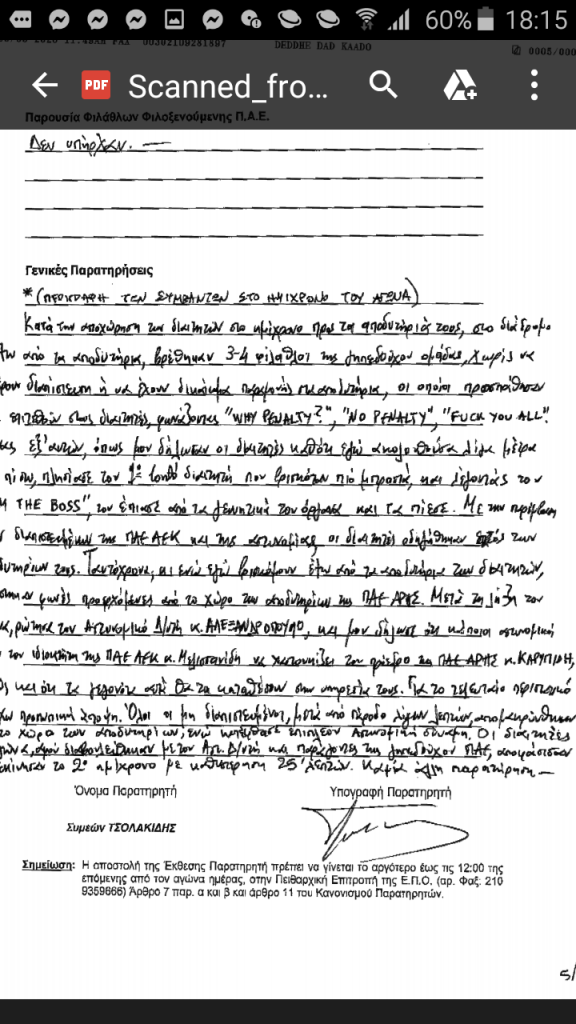 60% 18:15
FAX 00302109281697 DEDDHE DAD KAADO 0005/000
PDF Scanned_fro...
Παρουσία Φιλάθλων Φιλοξενούμενης Π.Α.Ε.
Δεν υπήρχαν.
Γενικές Παρατηρήσεις
*(ΠΕΡΙΓΡΑΦΗ ΤΩΝ ΣΥΜΒΑΝΤΩΝ ΣΤΟ ΗΜΙΧΡΟΝΟ ΤΟΥ ΑΓΩΝΑ)
Κατά την αποχώρηση των διαιτητών στο ημίχρονο προς τα αποδυτήριά τους, στο διάδρομο
από τα αποδυτήρια, βρέθηκαν 3-4 φίλαθλοι της γηπεδούχου ομάδας, χωρίς να
διαπίστευση ή να έχουν δικαίωμα παραμονής στα αποδυτήρια, οι οποίοι προσπάθησαν
επιτεθούν στους διαιτητές, φωνάζοντας "WHY PENALTY?", "NO PENALTY", "FUCK YOU ALL".
εξ'αυτών, όπως μου δήλωσαν οι διαιτητές καθότι εγώ ακολουθούσα λίγα μέτρα
πίσω, πλησίασε τον 1º βοηθό διαιτητή που βρισκόταν πιο μπροστά, και λέγοντάς του
THE BOSS", τον έπιασε από τα γεννητικά του όργανα και τα πίεσε. Με την παρέμβαση
διαπιστευμένων της ΠΑΕ ΑΕΚ και της αστυνομίας, οι διαιτητές οδηγήθηκαν εντός των
τους. Ταυτόχρονα, κι ενώ εγώ βρισκόμουν έξω από τα αποδυτήρια των διαιτητών,
φωνές προερχόμενες από το χώρο των αποδυτηρίων της ΠΑΕ ΑΡΗΣ. Μετά τη λήξη του
ρώτησα τον Αστυνομικό Δ/ντή κ. ΑΛΕΞΑΝΔΡΟΠΟΥΛΟ, και μου δήλωσε ότι κάποιοι αστυνομικοί
τον ιδιοκτήτη της ΠΑΕ ΑΕΚ κ. Μελισσανίδη να χαστουκίζει τον πρόεδρο της ΠΑΕ ΑΡΗΣ κ. ΚΑΡΥΠΙΔΗ,
και ότι τα γεγονότα αυτά θα τα καταθέσουν στην υπηρεσία τους. Για το τελευταίο περιστατικό
προσωπική άποψη. Όλοι οι μη διαπιστευμένοι, μετά από πάροδο λίγων λεπτών, απομακρύνθηκαν
το χώρο των αποδυτηρίων, ενώ κατέφθασε επιπλέον αστυνομική δύναμη. Οι διαιτητές
αφού διαβουλεύθηκαν με τον Αστ. Δ/ντή και παράγοντες της γηπεδούχου ΠΑΕ, αποφάσισαν
το 2º ημίχρονο με καθυστέρηση 25 λεπτών. Καμία άλλη παρατήρηση
Όνομα Παρατηρητή Υπογραφή Παρατηρητή
Συμεών ΤΣΟΛΑΚΙΔΗΣ
Σημείωση: Η αποστολή της Έκθεσης Παρατηρητή πρέπει να γίνεται το αργότερο έως τις 12:00 της
επόμενης από τον αγώνα ημέρας, στην Πειθαρχική Επιτροπή της Ε.Π.Ο. (αρ. Φαξ: 210
9359666) Άρθρο 7 παρ. α και β και άρθρο 11 του Κανονισμού Παρατηρητών.
5/